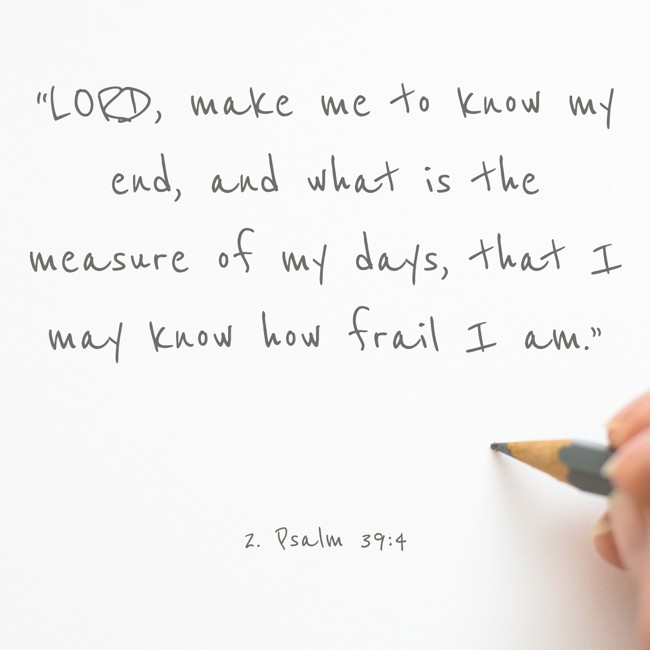 "LORD, make me to know my
end, and what is the
measure of my days, that I
may know how frail I am."
2. Psalm 39:4